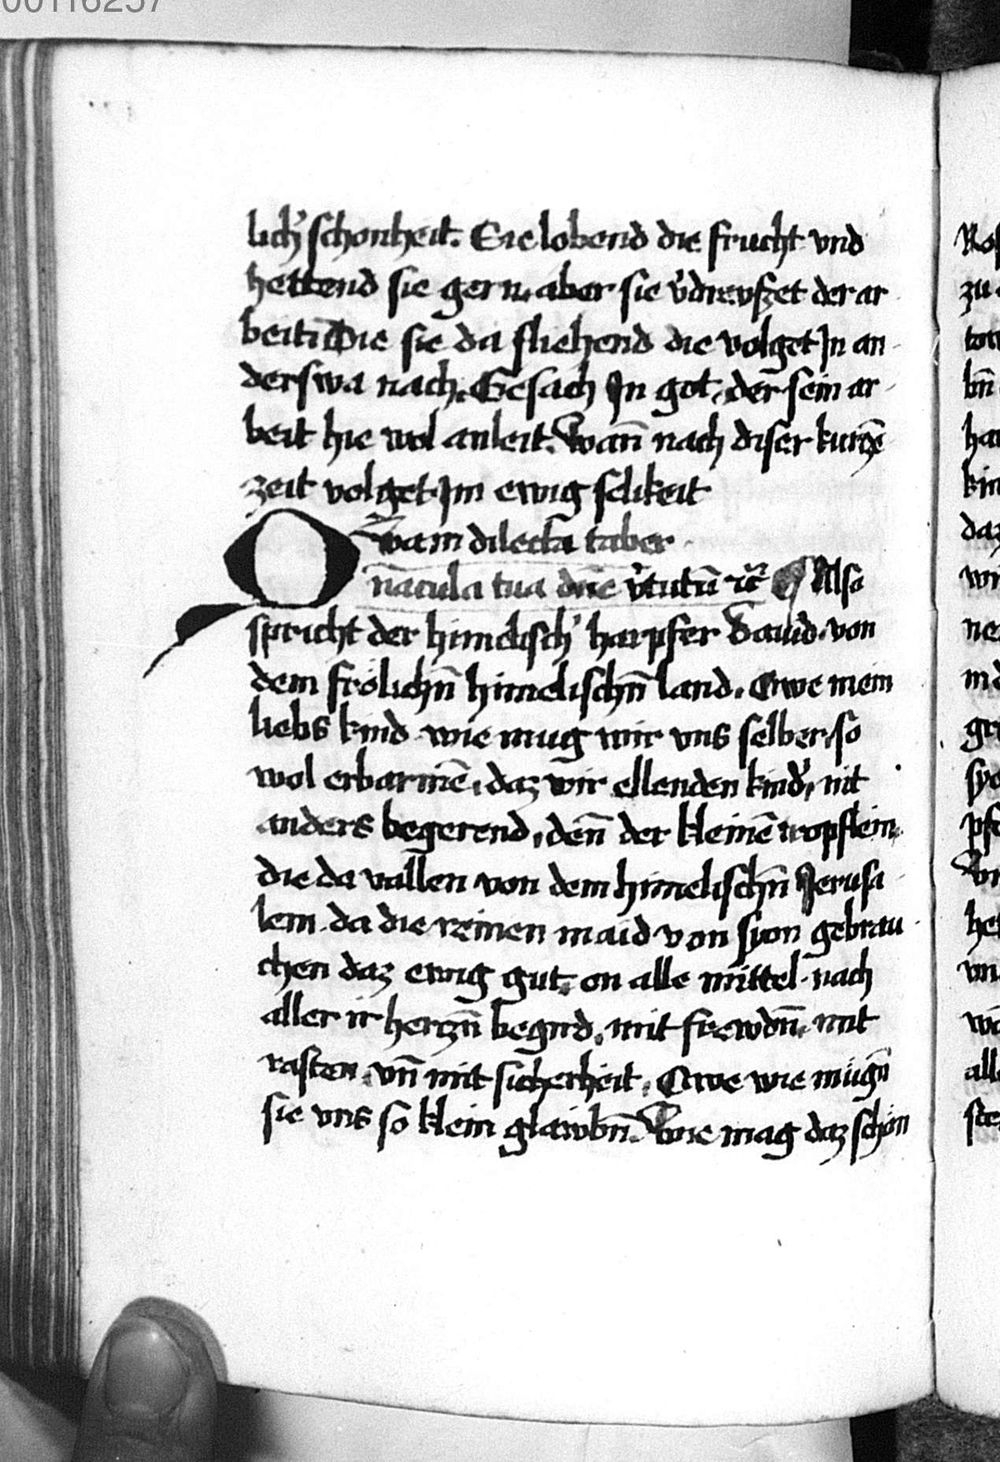 00116257
lich' schonheit. Sie lobend die frucht vnd
hettend sie gern. aber sie v'dreuſzet der ar
beit. Die sie da fliehend die volget Jn an
derswa nach. Gesach Jn got, der sein ar
beit hie wol anleit. Wan̄ nach diser kurtzē
zeit volget Jm ewig selikeit
Qvam dilecta taber
nacula tua dn̄e v'tutū ꝛc̄ ¶ Also
spricht der himelisch' harpfer Dauid. von
dem frölichn̄ himelischn̄ land. Owe mein
liebs kind wie mug wir vns selber so
wol erbarmē. daz wir ellenden kind', nit
anders begerend, den̄ der kleinē tropflein
die da vallen von dem himelischn̄ Jerusa
lem. da die reinen maid von syon gebrau
chen daz ewig gut. on alle mittel. nach
aller ir hertzn̄ begird. mit frewdn̄. mit
rasten. vn̄ mit sicherheit. Owe wie mügn̄
sie vns so klein glawbn̄. Wie mag daz schön
zu